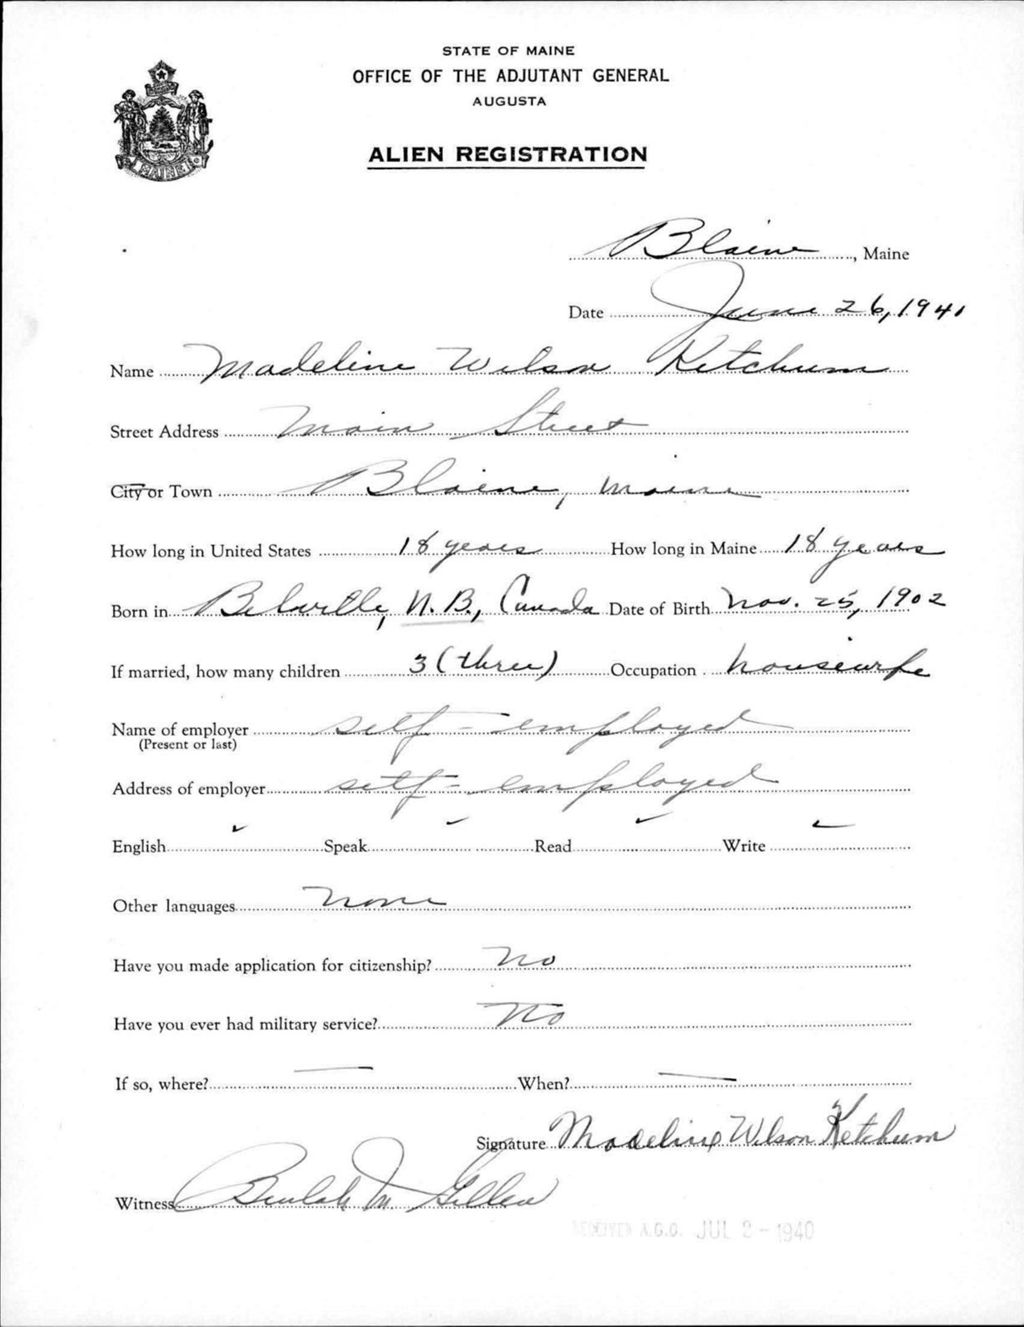 STATE OF MAINE
OFFICE OF THE ADJUTANT GENERAL
AUGUSTA
ALIEN REGISTRATION
MAINE
Blaine, Maine
Date June 26, 1941
Name Madeline Wilson Ketchum
Street Address Main Street
City or Town Blaine, Maine
How long in United States 18 years How long in Maine 18 years
Born in N.B., Canada Date of Birth Nov. 25, 1902
If married, how many children 3 (three) Occupation housewife
Name of employer self-employed
(Present or last)
Address of employer self-employed
English ✓ Speak ✓ Read ✓ Write ✓
Other languages none
Have you made application for citizenship? No
Have you ever had military service? No
If so, where? — When? —
Signature Madeline Wilson Ketchum
Witness Beulah M. Gillen
RECEIVED A.G.O. JUL 2 - 1940